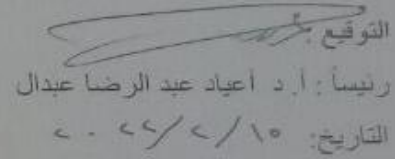 التوقيع :
رئيساً : أ. د أعياد عبد الرضا عبدال
التاريخ: ١٥ / ٢ / ٢٠٢٢